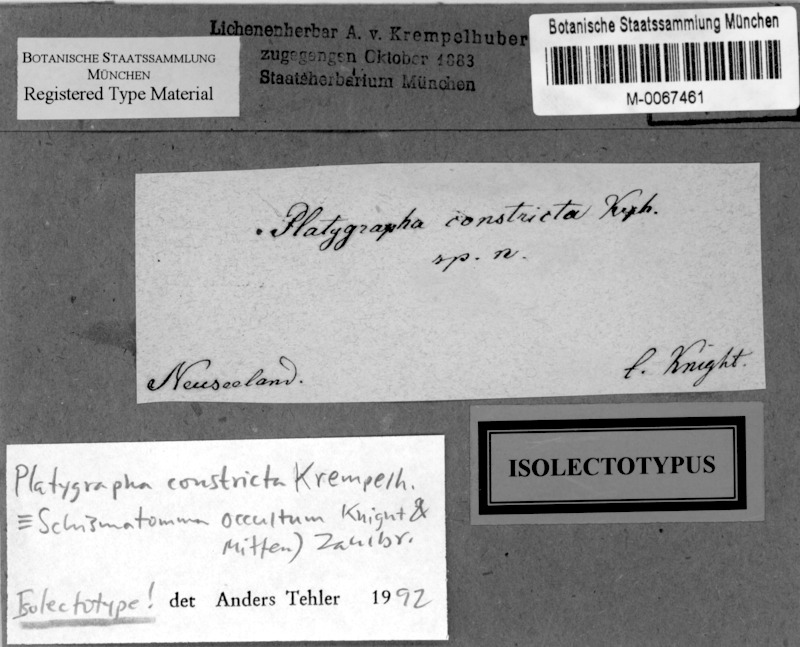 Lichenenherbar A. v. Krempelhuber
zugegangen Oktober 1883
Staatsherbarium München
BOTANISCHE STAATSSAMMLUNG
MÜNCHEN
Registered Type Material
Botanische Staatssammlung München
M-0067461
Platygrapha constricta Krph.
sp. n.
Neuseeland.
C. Knight.
ISOLECTOTYPUS
Platygrapha constricta Krempelh.
≡ Schizmatomma occultum Knight &
Mitten) Zahlbr.
Isolectotype! det Anders Tehler 1992